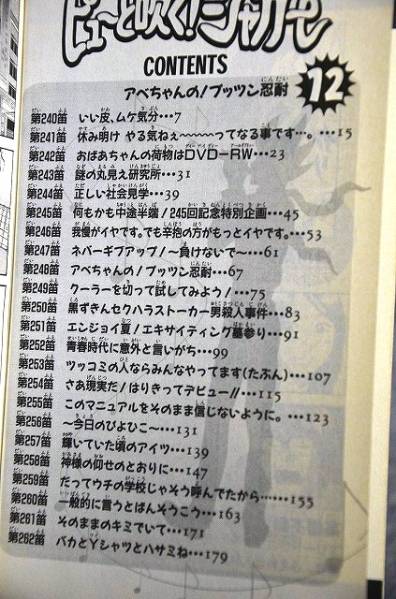 ピューと吹く!ジャガー
CONTENTS
アベちゃんの!プッツン忍耐
12
第240笛 いい皮、ムケ気分…7
第241笛 休み明け やる気ねぇ〜〜〜〜〜ってなる事です…。…15
第242笛 おばあちゃんの荷物はDVD-RW…23
第243笛 謎の丸見え研究所…31
第244笛 正しい社会見学…39
第245笛 何もかも中途半端!245回記念特別企画…45
第246笛 我慢がイヤです。でも辛抱の方がもっとイヤです。…53
第247笛 ネバーギブアップ!〜負けないで〜…61
第248笛 アベちゃんの!プッツン忍耐…67
第249笛 クーラーを切って試してみよう!…75
第250笛 黒ずきんセクハラストーカー男殺人事件…83
第251笛 エンジョイ夏!エキサイティング墓参り…91
第252笛 青春時代に意外と言いがち…99
第253笛 ツッコミの人ならみんなやってます(たぶん)…107
第254笛 さあ現実だ!はりきってデビュー!!…115
第255笛 このマニュアルをそのまま信じないように。…123
第256笛 〜今日のぴよひこ〜…131
第257笛 輝いていた頃のアイツ…139
第258笛 神様の仰せのとおりに…147
第259笛 だってウチの学校じゃそう呼んでたから……155
第260笛 一般的に言うとばんそうこう…163
第261笛 そのままのキミでいて…171
第262笛 バカとYシャツとハサミね…179